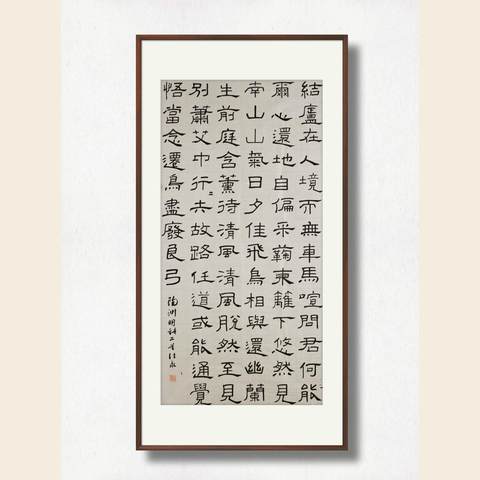 結廬在人境而無車馬喧問君何能
爾心遠地自偏采鞠東籬下悠然見
南山山氣日夕佳飛鳥相與還幽蘭
生前庭含薰待清風清風脫然至見
別蕭艾中行=去故路任道或能通覺
悟當念還鳥盡廢良弓
陶淵明詩二首